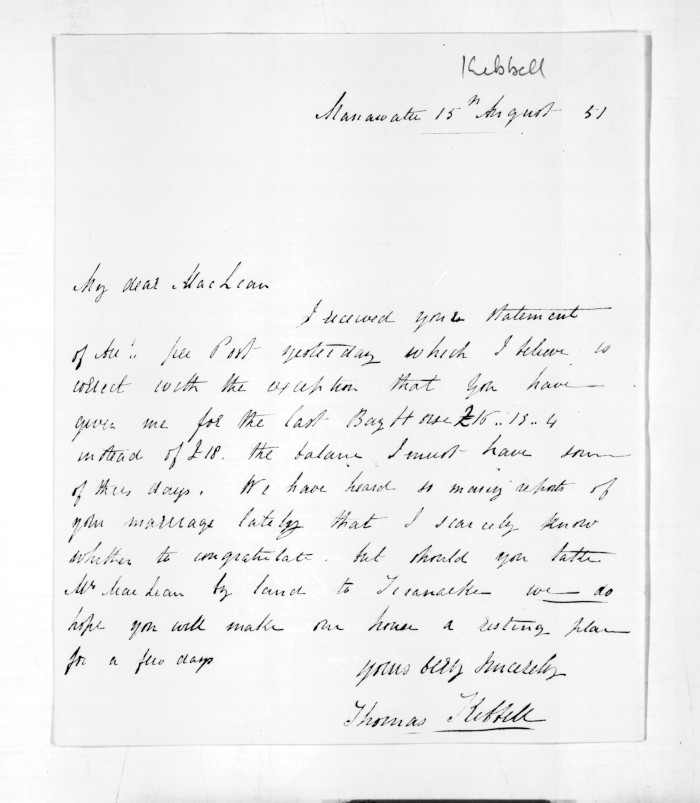 Kebbell
Manawatu 15th August 51
My dear MacLean
I received your statement
of Acct. per Post yesterday which I believe is
correct with the exception that you have
given me for the last Bay Horse £16..15..4
instead of £18. the balance I must have some
of thes days. We have heard so many reports of
your marriage lately that I scarcely know
whether to congratulate. but should you take
Mrs MacLean by land to Taranaki we do
hope you will make our house a resting place
for a few days
yours very sincerely
Thomas Kebbell